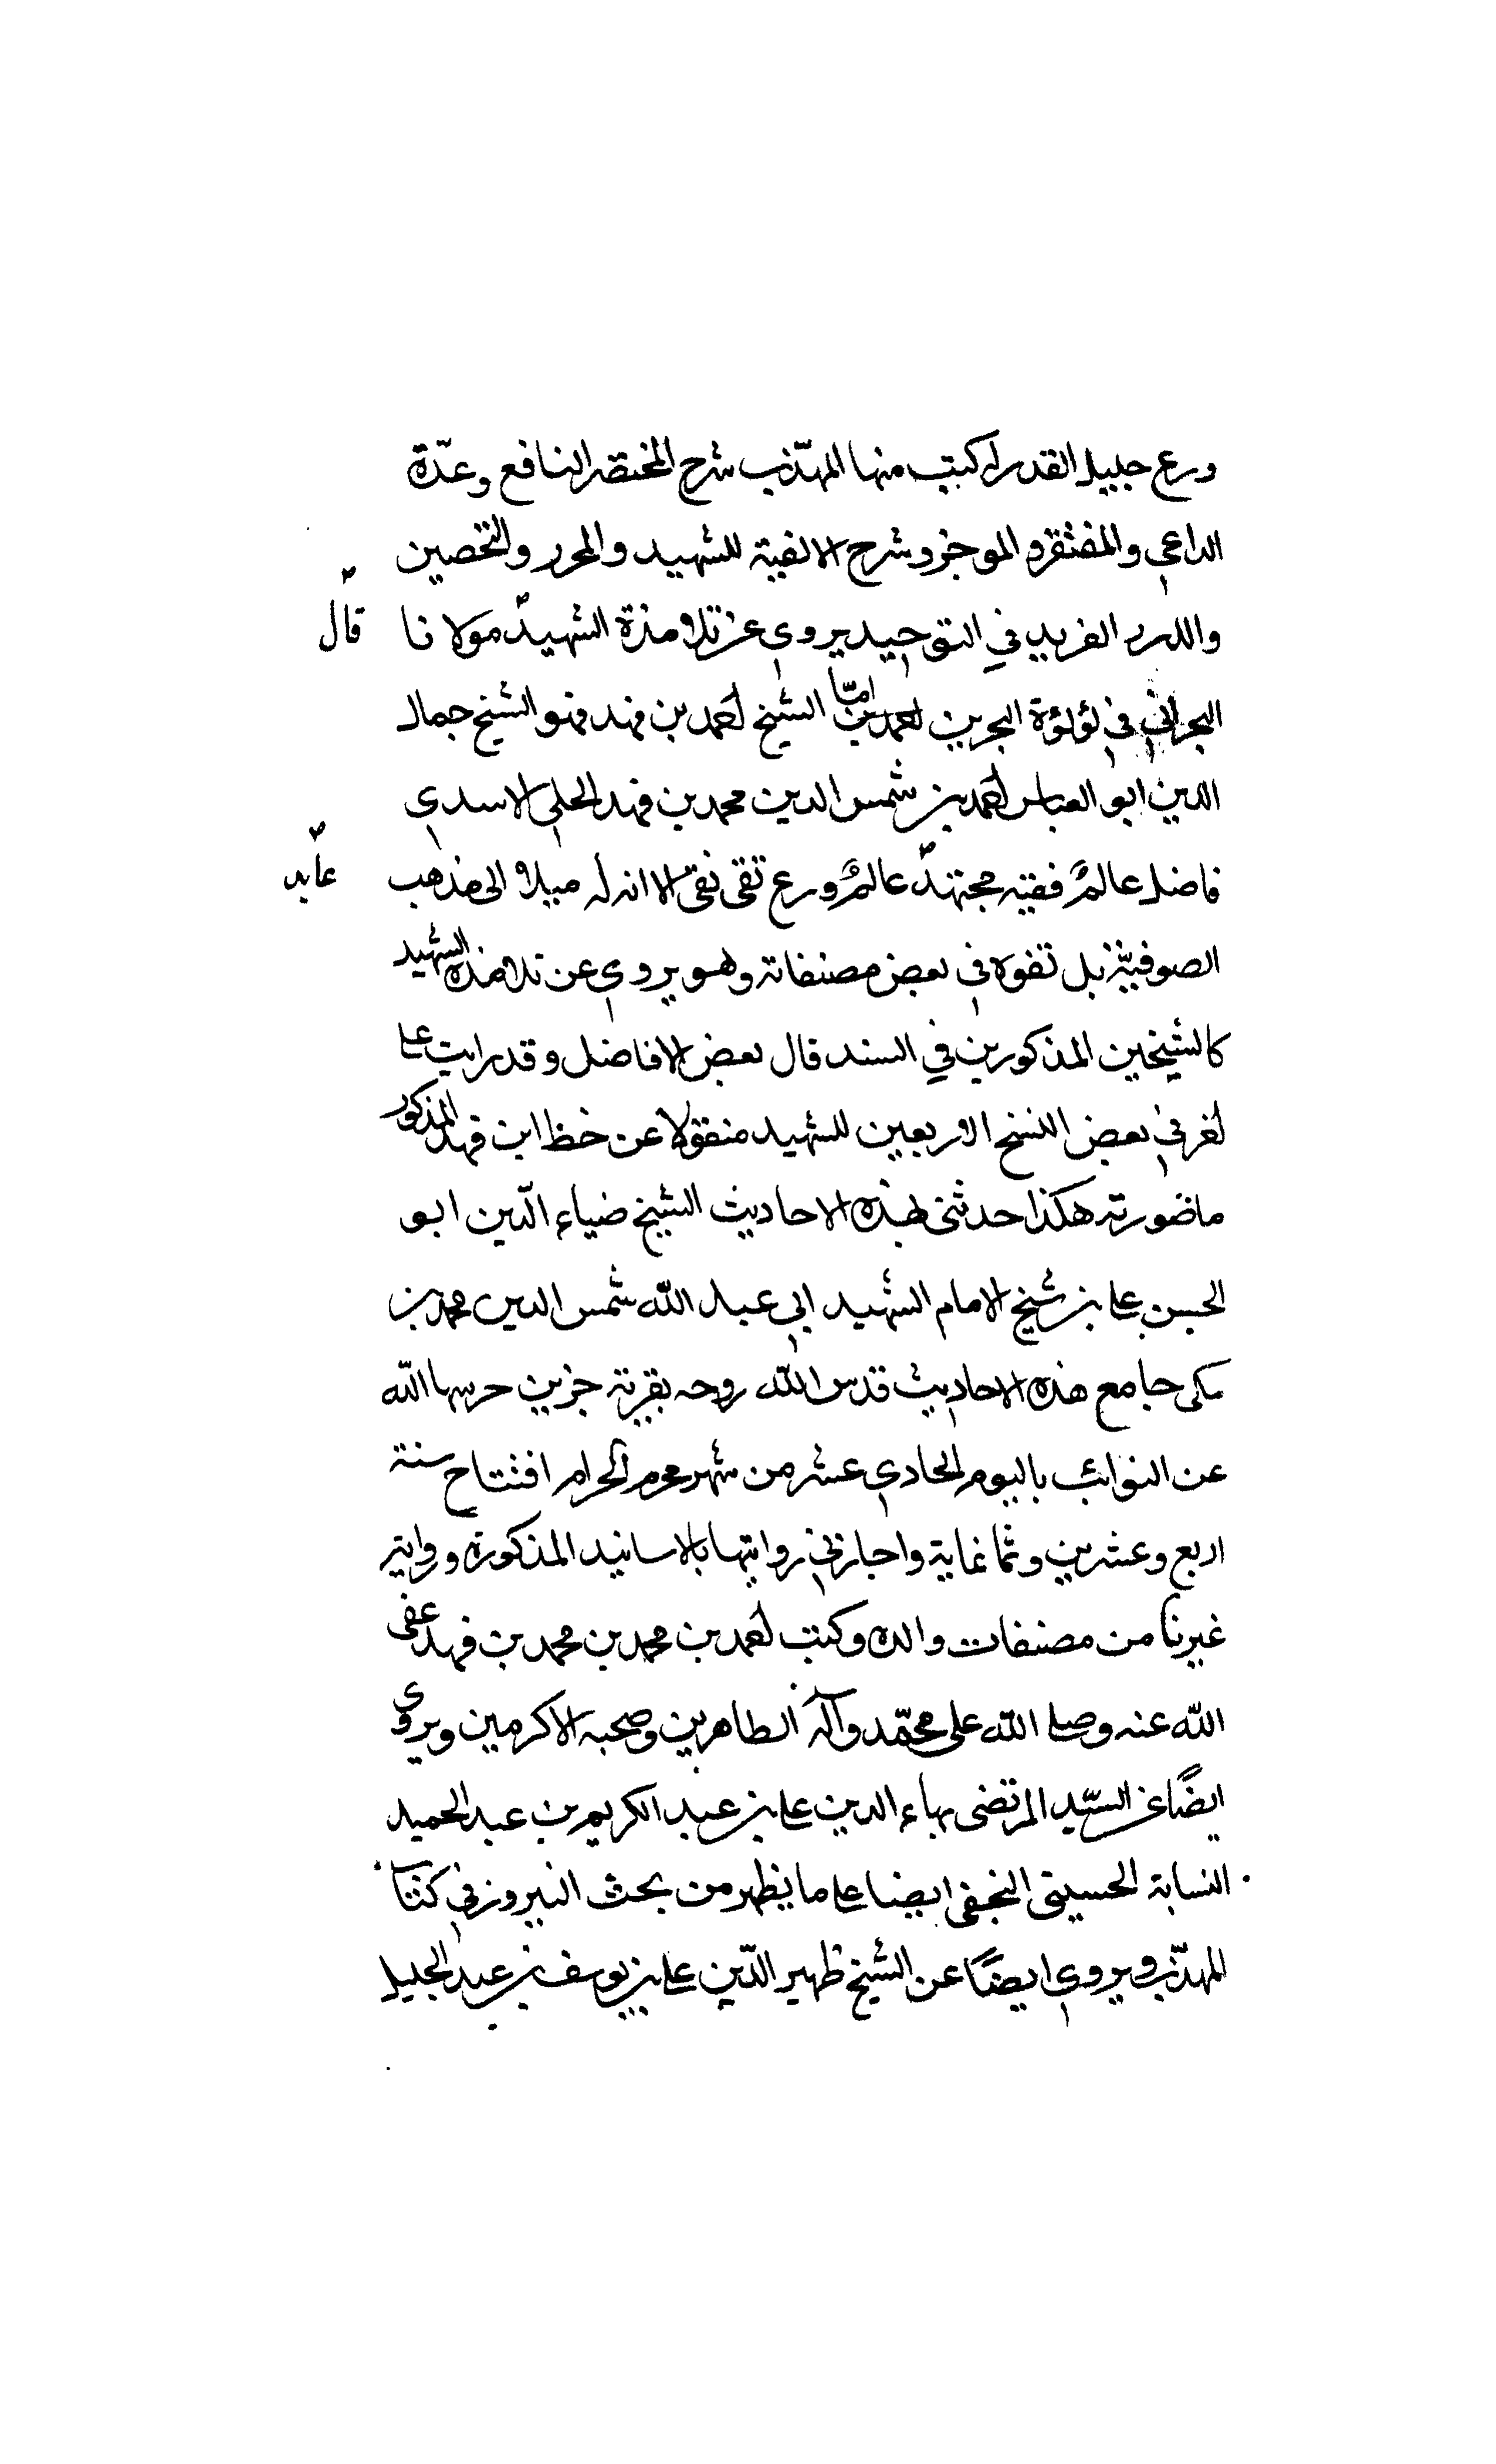 ورع جليل القدر له كتب منها المهذّب شرح المختصر النافع وعدّة
الداعي والمقتصر والموجز وشرح الالفية للشهيد والمحرر والتحصين
والدر الفريد في التوحيد يروي عن تلامذة الشهيد مولانا قال
البحراني في لؤلؤة البحرين امّا الشيخ احمد بن فهد فهو الشيخ جمال
الدين ابو العباس احمد بن شمس الدين محمد بن فهد الحلي الاسدي
فاضل عالم فقيه مجتهد عالم ورع تقي نقي الا ان له ميلا الى مذهب عابد
الصوفيّة بل تفوه في بعض مصنفاته وهو يروي عن تلامذه الشهيد
كالشيخين المذكورين في السند قال بعض الافاضل وقد رايت على
اخر في بعض النسخ الاربعين للشهيد منقولا عن خط ابن فهد المذكور
ما صورته هكذا حدثني بهذه الاحاديث الشيخ ضياء الدّين ابو
الحسن علي بن شيخ الامام الشهيد ابي عبد الله شمس الدين محمد بن
مكي جامع هذه الاحاديث قدس الله روحه بقرية جزين حرسها الله
عن النوائب باليوم الحادي عشر من شهر محرم الحرام افتتاح سنة
اربع وعشرين وثمانماية واجازني روايتها بالاسانيد المذكورة ورواية
غيرها من مصنفات والده وكتب احمد بن محمد بن محمد بن فهد عفى
الله عنه وصلى الله على محمّد وآله الطاهرين وصحبه الاكرمين ويروي
ايضًا عن السيّد المرتضى بهاء الدين علي بن عبد الكريم بن عبد الحميد
النسابة الحسيني النجفي ايضا على ما يظهر من بحث النيروز في كتاب
المهذّب ويروي ايضًا عن الشيخ ظهير الدّين علي بن يوسف بن عبد الجليل